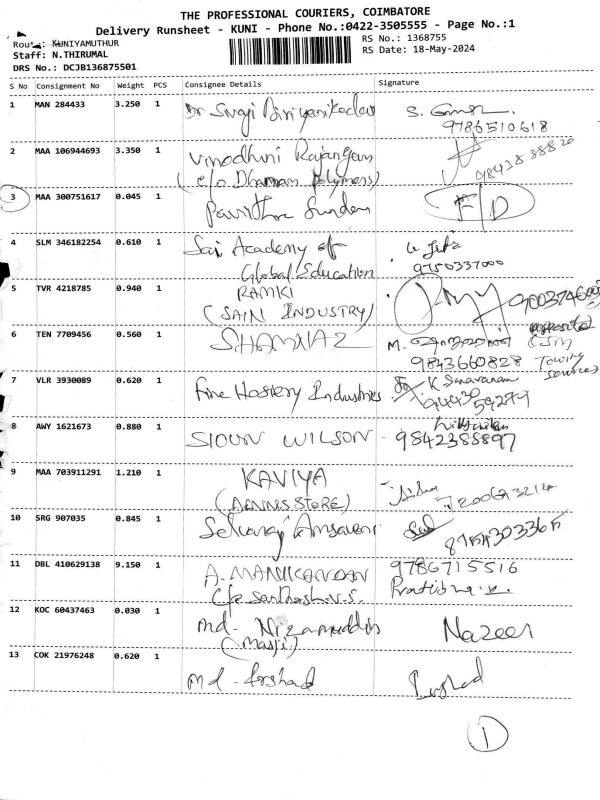 THE PROFESSIONAL COURIERS, COIMBATORE
Delivery Runsheet - KUNI - Phone No.:0422-3505555 - Page No.:1
Route: KUNIYAMUTHUR
RS No.: 1368755
Staff: N.THIRUMAL
RS Date: 18-May-2024
DRS No.: DCJB136875501
S No Consignment No Weight PCS Consignee Details Signature
1 MAN 284433 3.250 1
9786510618
2 MAA 106944693 3.350 1 Vinodhuni Rajangam
(c/o Dharman Polymers)
3 MAA 300751617 0.045 1 Pavithra Sundar F/D
4 SLM 346182254 0.610 1 Sai Academy of
Global Education 9750337000
5 TVR 4218785 0.940 1 RAMKI
(SAIN INDUSTRY)
6 TEN 7709456 0.560 1 SHAMNAZ M.
9843660828 Towing
7 VLR 3930089 0.620 1 Fine Hosiery Industries K Saravanan
8 AWY 1621673 0.880 1
WILSON 9842388897
9 MAA 703911291 1.210 1 KAVIYA
10 SRG 907035 0.845 1
11 DBL 410629138 9.150 1 A. MANIKANDAN 9786715516
C/o Santhosh.V.S.
12 KOC 60437463 0.030 1 Md- Nizamuddin Nazeer
13 COK 21976248 0.620 1 Md - Arshad
1